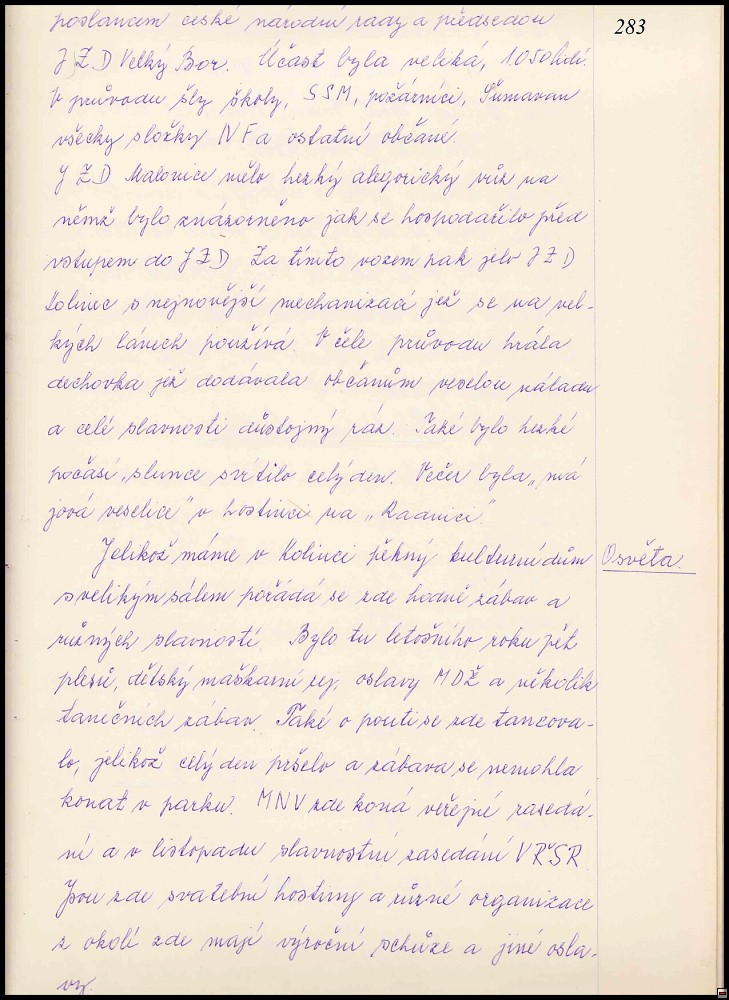 283
poslancem české národní rady a předsedou
JZD Velký Bor. Účast byla veliká, 1.050 lidí.
V průvodu šly školy, SSM, požárníci, Šumavan
všecky složky NF a ostatní občané.
JZD Malonice mělo hezký alegorický vůz na
němž bylo znázorněno jak se hospodařilo před
vstupem do JZD Za tímto vozem pak jelo JZD
Kolinec s nejnovější mechanizací jež se na vel-
kých lánech používá. V čele průvodu hrála
dechovka jež dodávala občanům veselou náladu
a celé slavnosti důstojný ráz. Také bylo hezké
počasí, slunce svítilo celý den. Večer byla „má
jová veselice" v hostinci na „Radnici".
Jelikož máme v Kolinci pěkný kulturní dům
Osvěta.
s velikým sálem pořádá se zde hodně zábav a
různých slavností. Bylo tu letošního roku pět
plesů, dětský maškarní rej, oslavy MDŽ a několik
tanečních zábav. Také o pouti se zde tancova-
lo, jelikož celý den pršelo a zábava se nemohla
konat v parku. MNV zde koná veřejné zasedá-
ní a v listopadu slavnostní zasedání VŘSR.
Jsou zde svatební hostiny a různé organizace
z okolí zde mají výroční schůze a jiné osla-
vy.